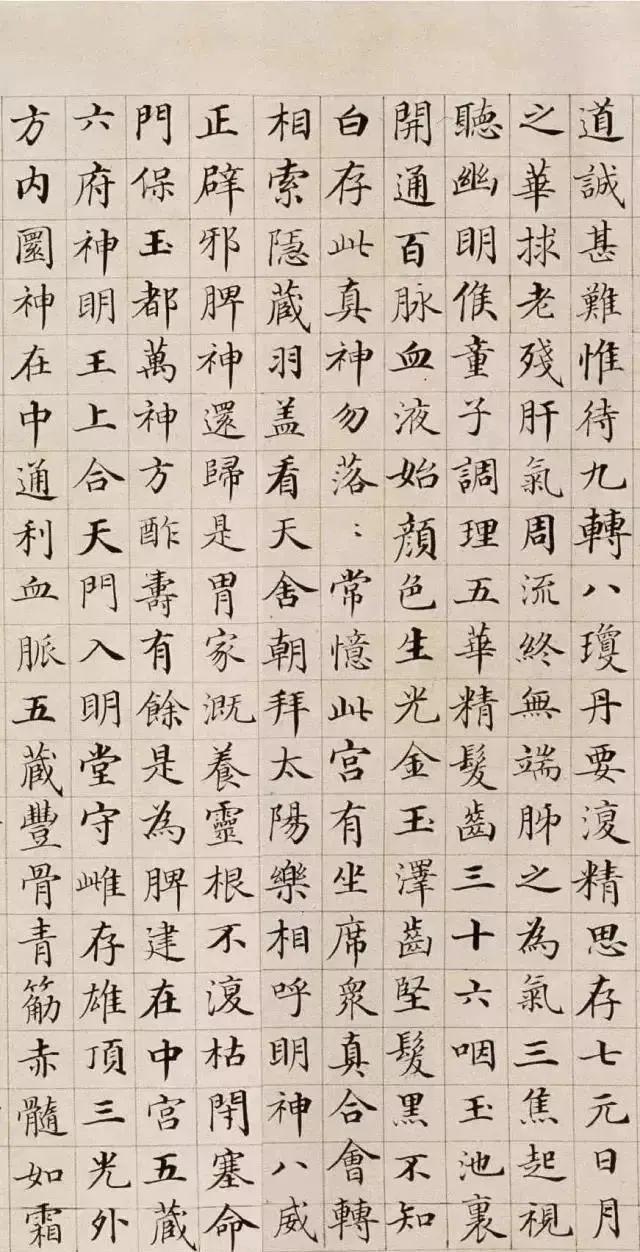 道誠甚難惟待九轉八瓊丹要復精思存七元日月
之華捄老殘肝氣周流終無端肺之為氣三焦起視
聽幽明候童子調理五華精髮齒三十六咽玉池裏
開通百脉血液始顏色生光金玉澤齒堅髮黑不知
白存此真神勿落〻常憶此宮有坐席衆真合會轉
相索隱蔵羽盖看天舍朝拜太陽樂相呼明神八威
正辟邪脾神還歸是胃家溉養靈根不復枯閇塞命
門保玉都萬神方酢壽有餘是為脾建在中宮五蔵
六府神明王上合天門入明堂守雌存雄頂三光外
方内圎神在中通利血脈五蔵豐骨青筋赤髓如霜